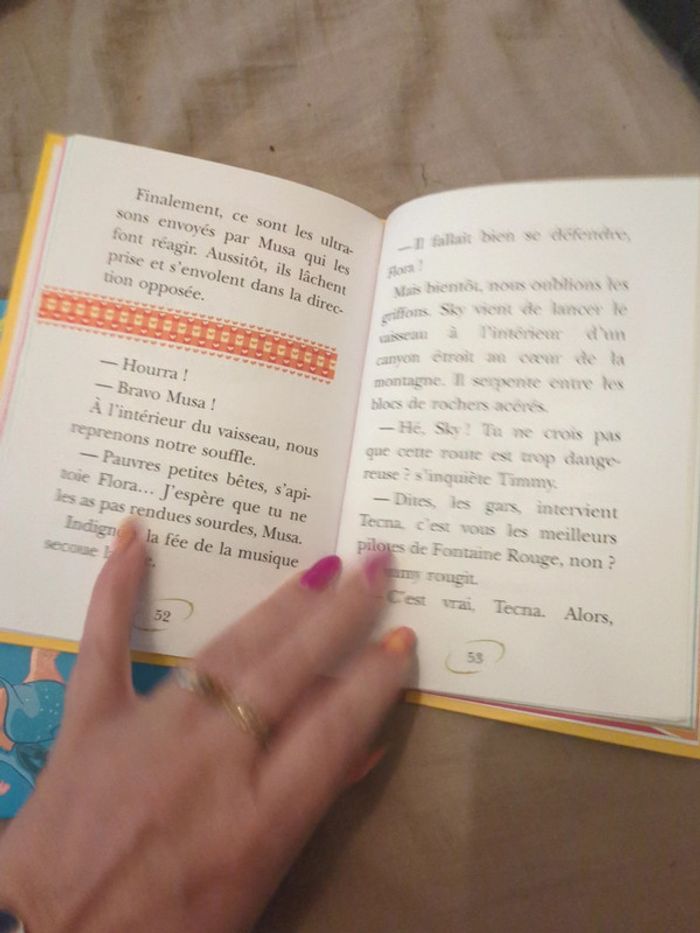 Finalement, ce sont les ultra-
sons envoyés par Musa qui les
font réagir. Aussitôt, ils lâchent
prise et s'envolent dans la direc-
tion opposée.
— Hourra !
— Bravo Musa !
À l'intérieur du vaisseau, nous
reprenons notre souffle.
— Pauvres petites bêtes, s'api-
toie Flora... J'espère que tu ne
les as pas rendues sourdes, Musa.
la fée de la musique
secoue
52
— Il fallait bien se défendre,
Flora !
Mais bientôt, nous oublions les
griffons. Sky vient de lancer le
vaisseau à l'intérieur d'un
canyon étroit au cœur de la
montagne. Il serpente entre les
blocs de rochers acérés.
— Hé, Sky ! Tu ne crois pas
que cette route est trop dange-
reuse ? s'inquiète Timmy.
— Dites, les gars, intervient
Tecna, c'est vous les meilleurs
pilotes de Fontaine Rouge, non ?
rougit.
C'est vrai, Tecna. Alors,
53